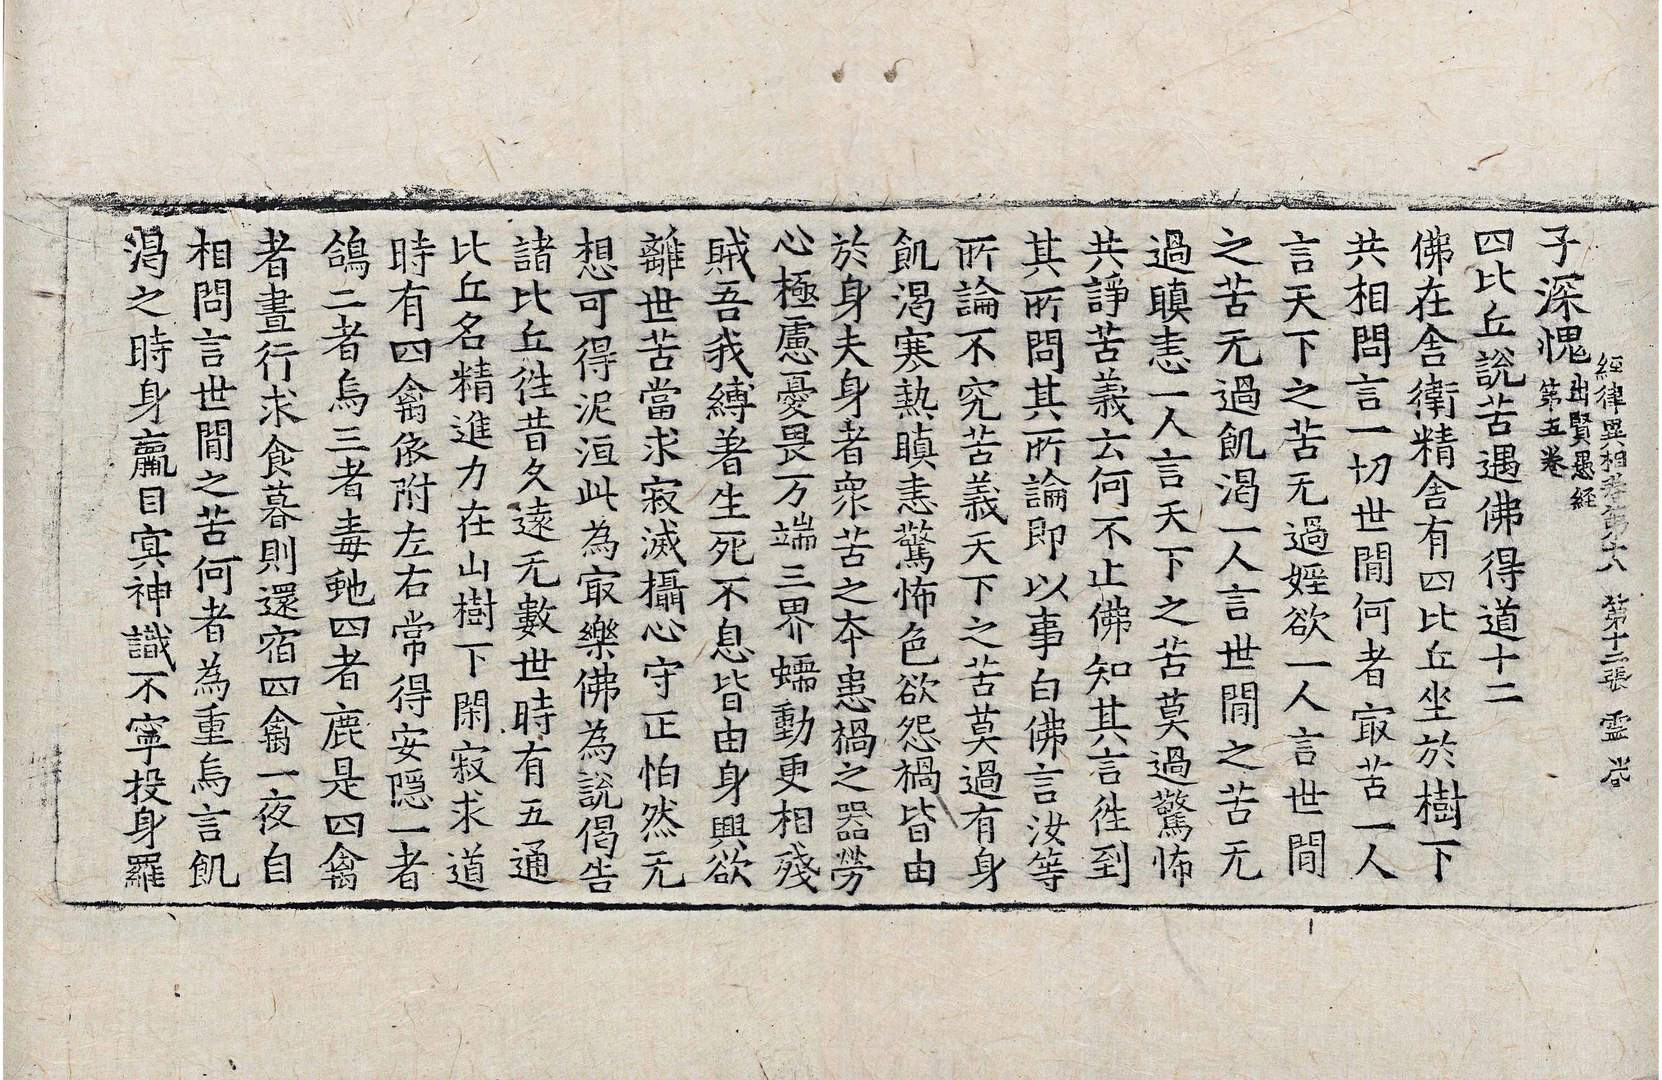 經律異相卷第十八 第十二張 靈
子深愧出賢愚經第五卷
四比丘說苦遇佛得道十二
佛在舍衛精舍有四比丘坐於樹下
共相問言一切世間何者㝡苦一人
言天下之苦无過婬欲一人言世間
之苦无過飢渴一人言世間之苦无
過瞋恚一人言天下之苦莫過驚怖
共諍苦義云何不止佛知其言徃到
其所問其所論即以事白佛言汝等
所論不究苦義天下之苦莫過有身
飢渴寒熱瞋恚驚怖色欲怨禍皆由
於身夫身者衆苦之本患禍之器勞
心極慮憂畏万端三界蠕動更相殘
賊吾我縛著生死不息皆由身興欲
離世苦當求寂滅攝心守正怕然无
想可得泥洹此為㝡樂佛為說偈告
諸比丘徃昔久遠无數世時有五通
比丘名精進力在山樹下閑寂求道
時有四禽依附左右常得安隱一者
鴿二者烏三者毒虵四者鹿是四禽
者晝行求食暮則還宿四禽一夜自
相問言世間之苦何者為重烏言飢
渴之時身羸目冥神識不寧投身羅